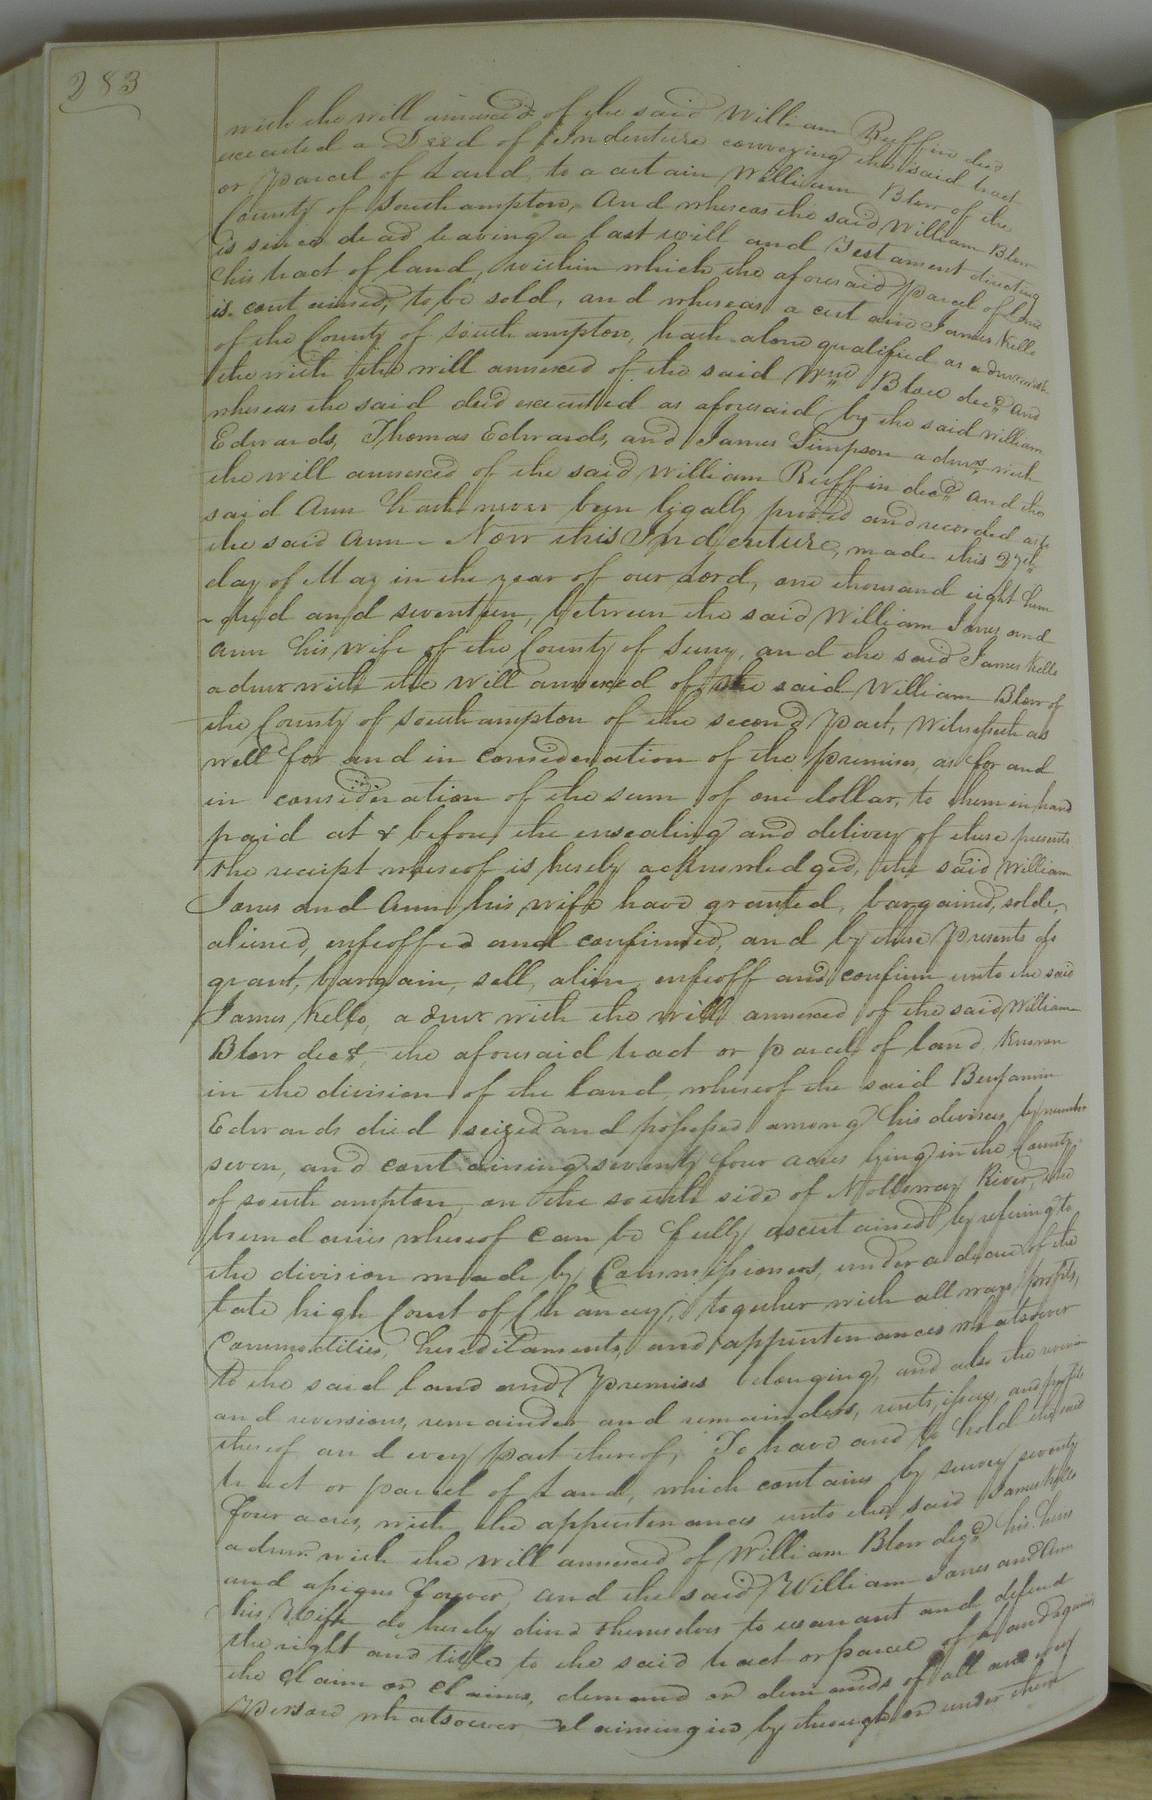 283
with the will annexed of the said William Ruffin decd
executed a Deed of Indenture conveying the said tract
or parcel of Land, to a certain William Blow of the
County of Southampton, And whereas the said William Blow
is since dead leaving a last will and Testament directing
his tract of land, within which the aforesaid parcel of Land
is contained, to be sold, and whereas a certain James Kello
of the County of Southampton, hath alone qualified as
with the will annexed of the said Wm Blow decd and
whereas the said deed executed as aforesaid by the said William
Edwards, Thomas Edwards, and James Simpson admrs with
the will annexed of the said William Ruffin decd and the
said Ann hath never been legally proved and recorded as to
the said Ann - Now this Indenture, made this 27th
day of May in the year of our Lord, one thousand eight hun
-dred and seventeen, between the said William Jones and
Ann his wife of the County of Surry, and the said James Kello
admr with the will annexed of the said William Blow of
the County of Southampton of the second part, Witnesseth as
well for and in consideration of the premises, as for and
in consideration of the sum of one dollar, to them in hand
paid at & before the ensealing and delivery of these presents
the receipt whereof is hereby acknowledged, the said William
Jones and Ann his wife have granted, bargained, solde,
aliened, enfeoffed and confirmed, and by these presents do
grant, bargain, sell, alien, enfeoff and confirm unto the said
James Kello, admr with the will annexed of the said William
Blow decd, the aforesaid tract or parcel of land, Known
in the division of the land, whereof the said Benjamin
Edwards died seized and possessed among his devisees, by number
seven, and containing seventy four acres lying in the County
of Southampton, on the south side of Nottoway River, the
boundaries whereof can be fully ascertained by refering to
the division made by Commissioners, under a decree of the
late high Court of Chancery, together with all ways, profits,
Commodities, hereditaments, and appurtenances whatsoever
to the said land and premises belonging, and also the reversion
and reversions, remainder and remainders, rents, issues, and profits
thereof and every part thereof, To have and to hold the said
tract or parcel of Land, which contains by survey seventy
four acres, with the appurtenances unto the said James Kello
admr with the will annexed of William Blow decd his heirs
and assigns forever, and the said William Jones and Ann
his Wife do hereby bind themselves to warrant and defend
the right and title to the said tract or parcel of land against
the claim or claims, demand or demands of all and every
person whatsoever claiming in by through or under them